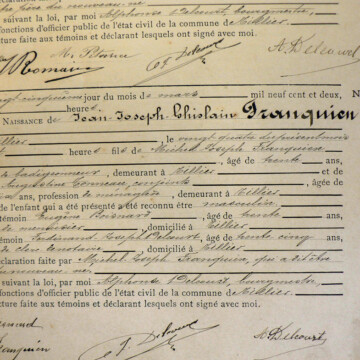 père du nouveau-né.
suivant la loi, par moi Alphonse Delcourt, bourgmestre,
fonctions d'officier public de l'état civil de la commune de Tillier.
ture faite aux témoins et déclarant lesquels ont signé avec moi.
Romain
A. Delcourt
cinquième jour du mois de mars mil neuf cent et deux, à
heures
NAISSANCE DE Jean-Joseph-Ghislain Franquien
Tillier le vingt quatre du présent mois
heures fils de Michel Joseph Franquien
âgé de trente ans,
de badigeonneur, demeurant à Tillier et de
Augustine, conjointe, âgée de
ans, profession de ménagère, demeurant à Tillier
de l'enfant qui a été présenté a été reconnu être masculin
témoin Eugène, âgé de trente ans,
de menuisier, domicilié à Tillier
témoin Ferdinand Joseph Delcourt, âgé de trente cinq ans,
de clerc, domicilié à Tillier
déclaration faite par Michel Joseph Franquien, qui a dit être
nouveau-né.
suivant la loi, par moi Alphonse Delcourt, bourgmestre,
fonctions d'officier public de l'état civil de la commune de Tillier.
ture faite aux témoins et déclarant lesquels ont signé avec moi.
F. Delcourt
A. Delcourt
anquien